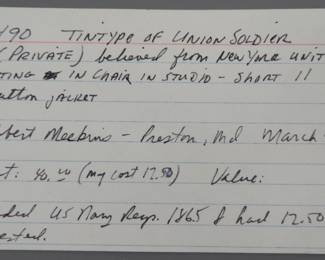 490 TINTYPE OF UNION SOLDIER
(PRIVATE) believed from New York UNIT
TING IN CHAIR IN STUDIO - SHORT 11
utton JACKET
bert Meekins - Preston, Md March
t: 40.00 (my cost 12.50) Value:
ded US Navy Reg. 1865 & had 12.50
ested.